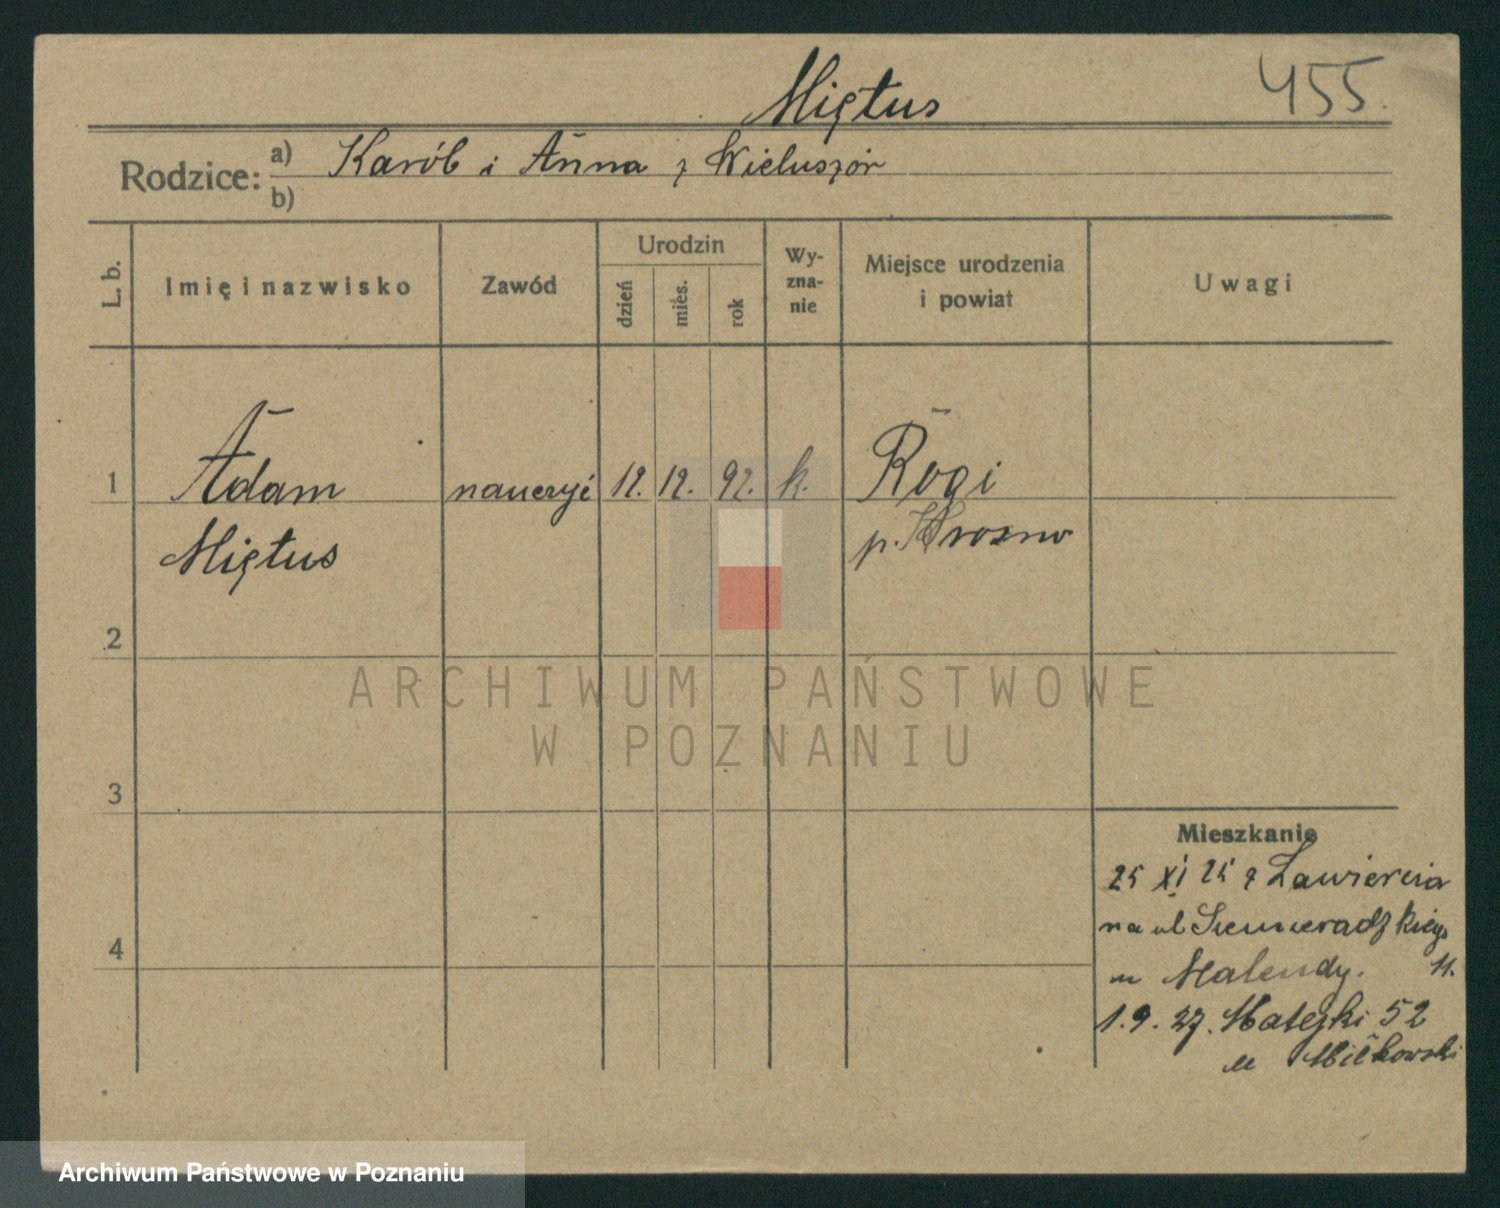 Miętus
455.
Rodzice: a) Karól i Anna z Wieluszór
b)
L. b.
Imię i nazwisko
Zawód
Urodzin
dzień
mies.
rok
Wy-
zna-
nie
Miejsce urodzenia
i powiat
Uwagi
1 Adam 12. 12. 92. k. Rogi
Miętus p. Krosno
2
3
4
ARCHIWUM PAŃSTWOWE
W POZNANIU
Mieszkanie
25 XI 25 z Zawiercia
na ul Siemieradzkiego
u Malendy. 11.
1. 9. 27. Matejki 52
u
Archiwum Państwowe w Poznaniu